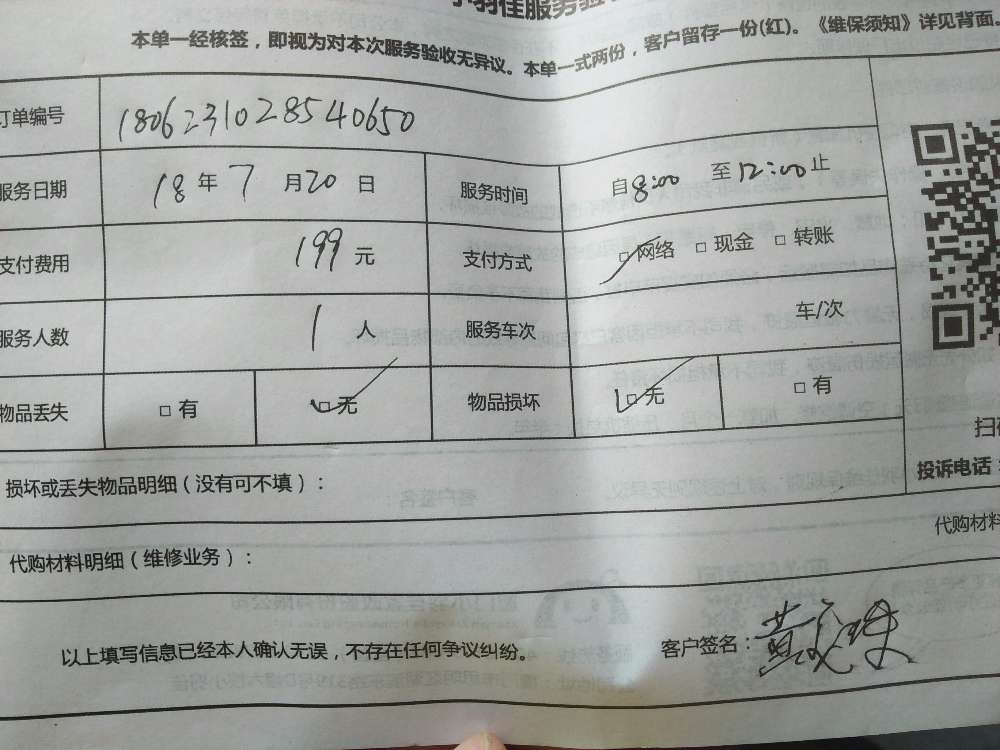 羽佳服务验
本单一经核签，即视为对本次服务验收无异议。本单一式两份，客户留存一份(红)。《维保须知》详见背面。
订单编号 180623102854 0650
服务日期 18 年 7 月 20 日 服务时间 自 8:00 至 12:00 止
支付费用 199 元 支付方式 □ 网络 □ 现金 □ 转账
服务人数 1 人 服务车次 车/次
物品丢失 □ 有 □ 无 物品损坏 □ 无 □ 有
扫
投诉电话：
损坏或丢失物品明细（没有可不填）：
代购材料
代购材料明细（维修业务）：
以上填写信息已经本人确认无误，不存在任何争议纠纷。 客户签名：黄